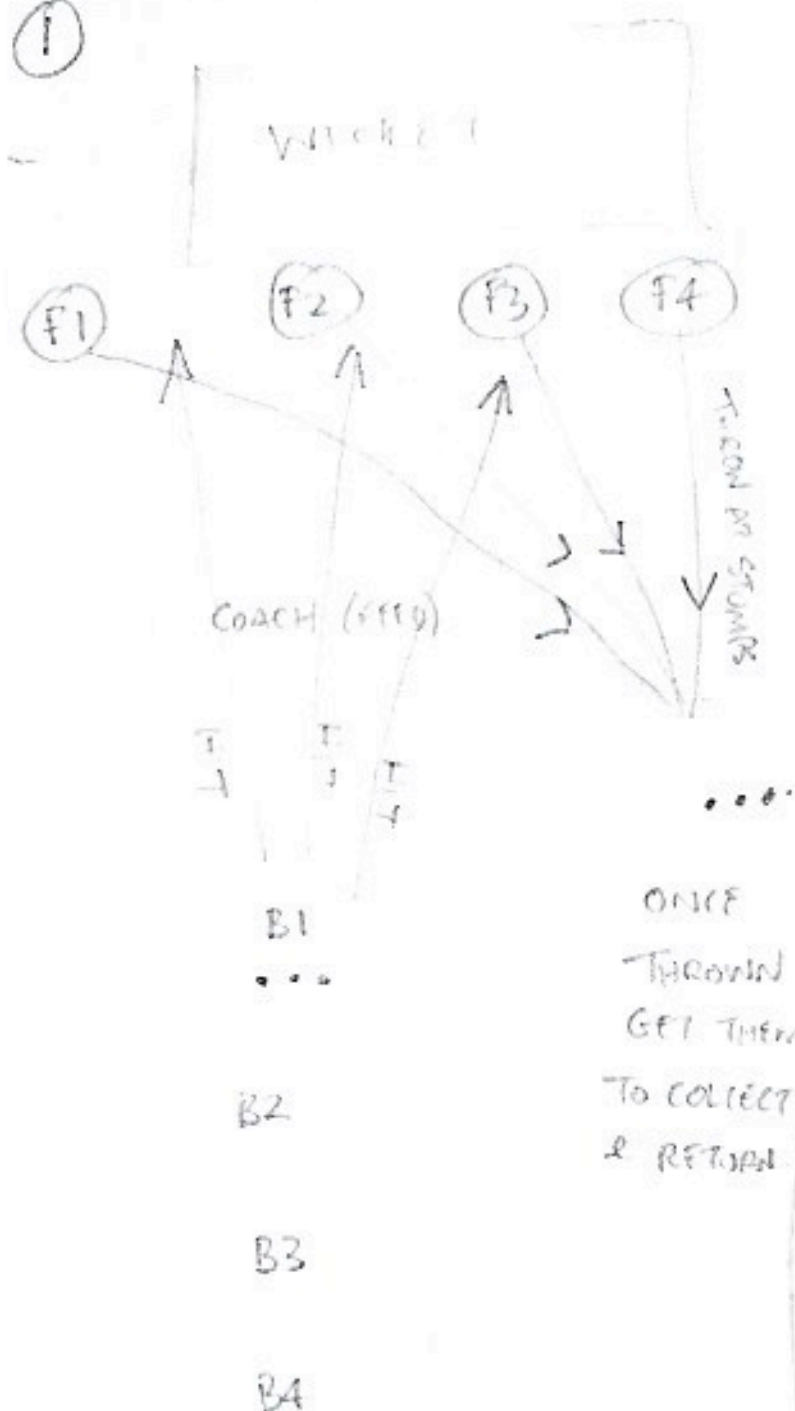 1
WICKET
F1 F2 F3 F4
THROW AT STUMPS
COACH (FEED)
T T T
B1
ONCE
THROWN
GET THEM
TO COLLECT
& RETURN
B2
B3
B4